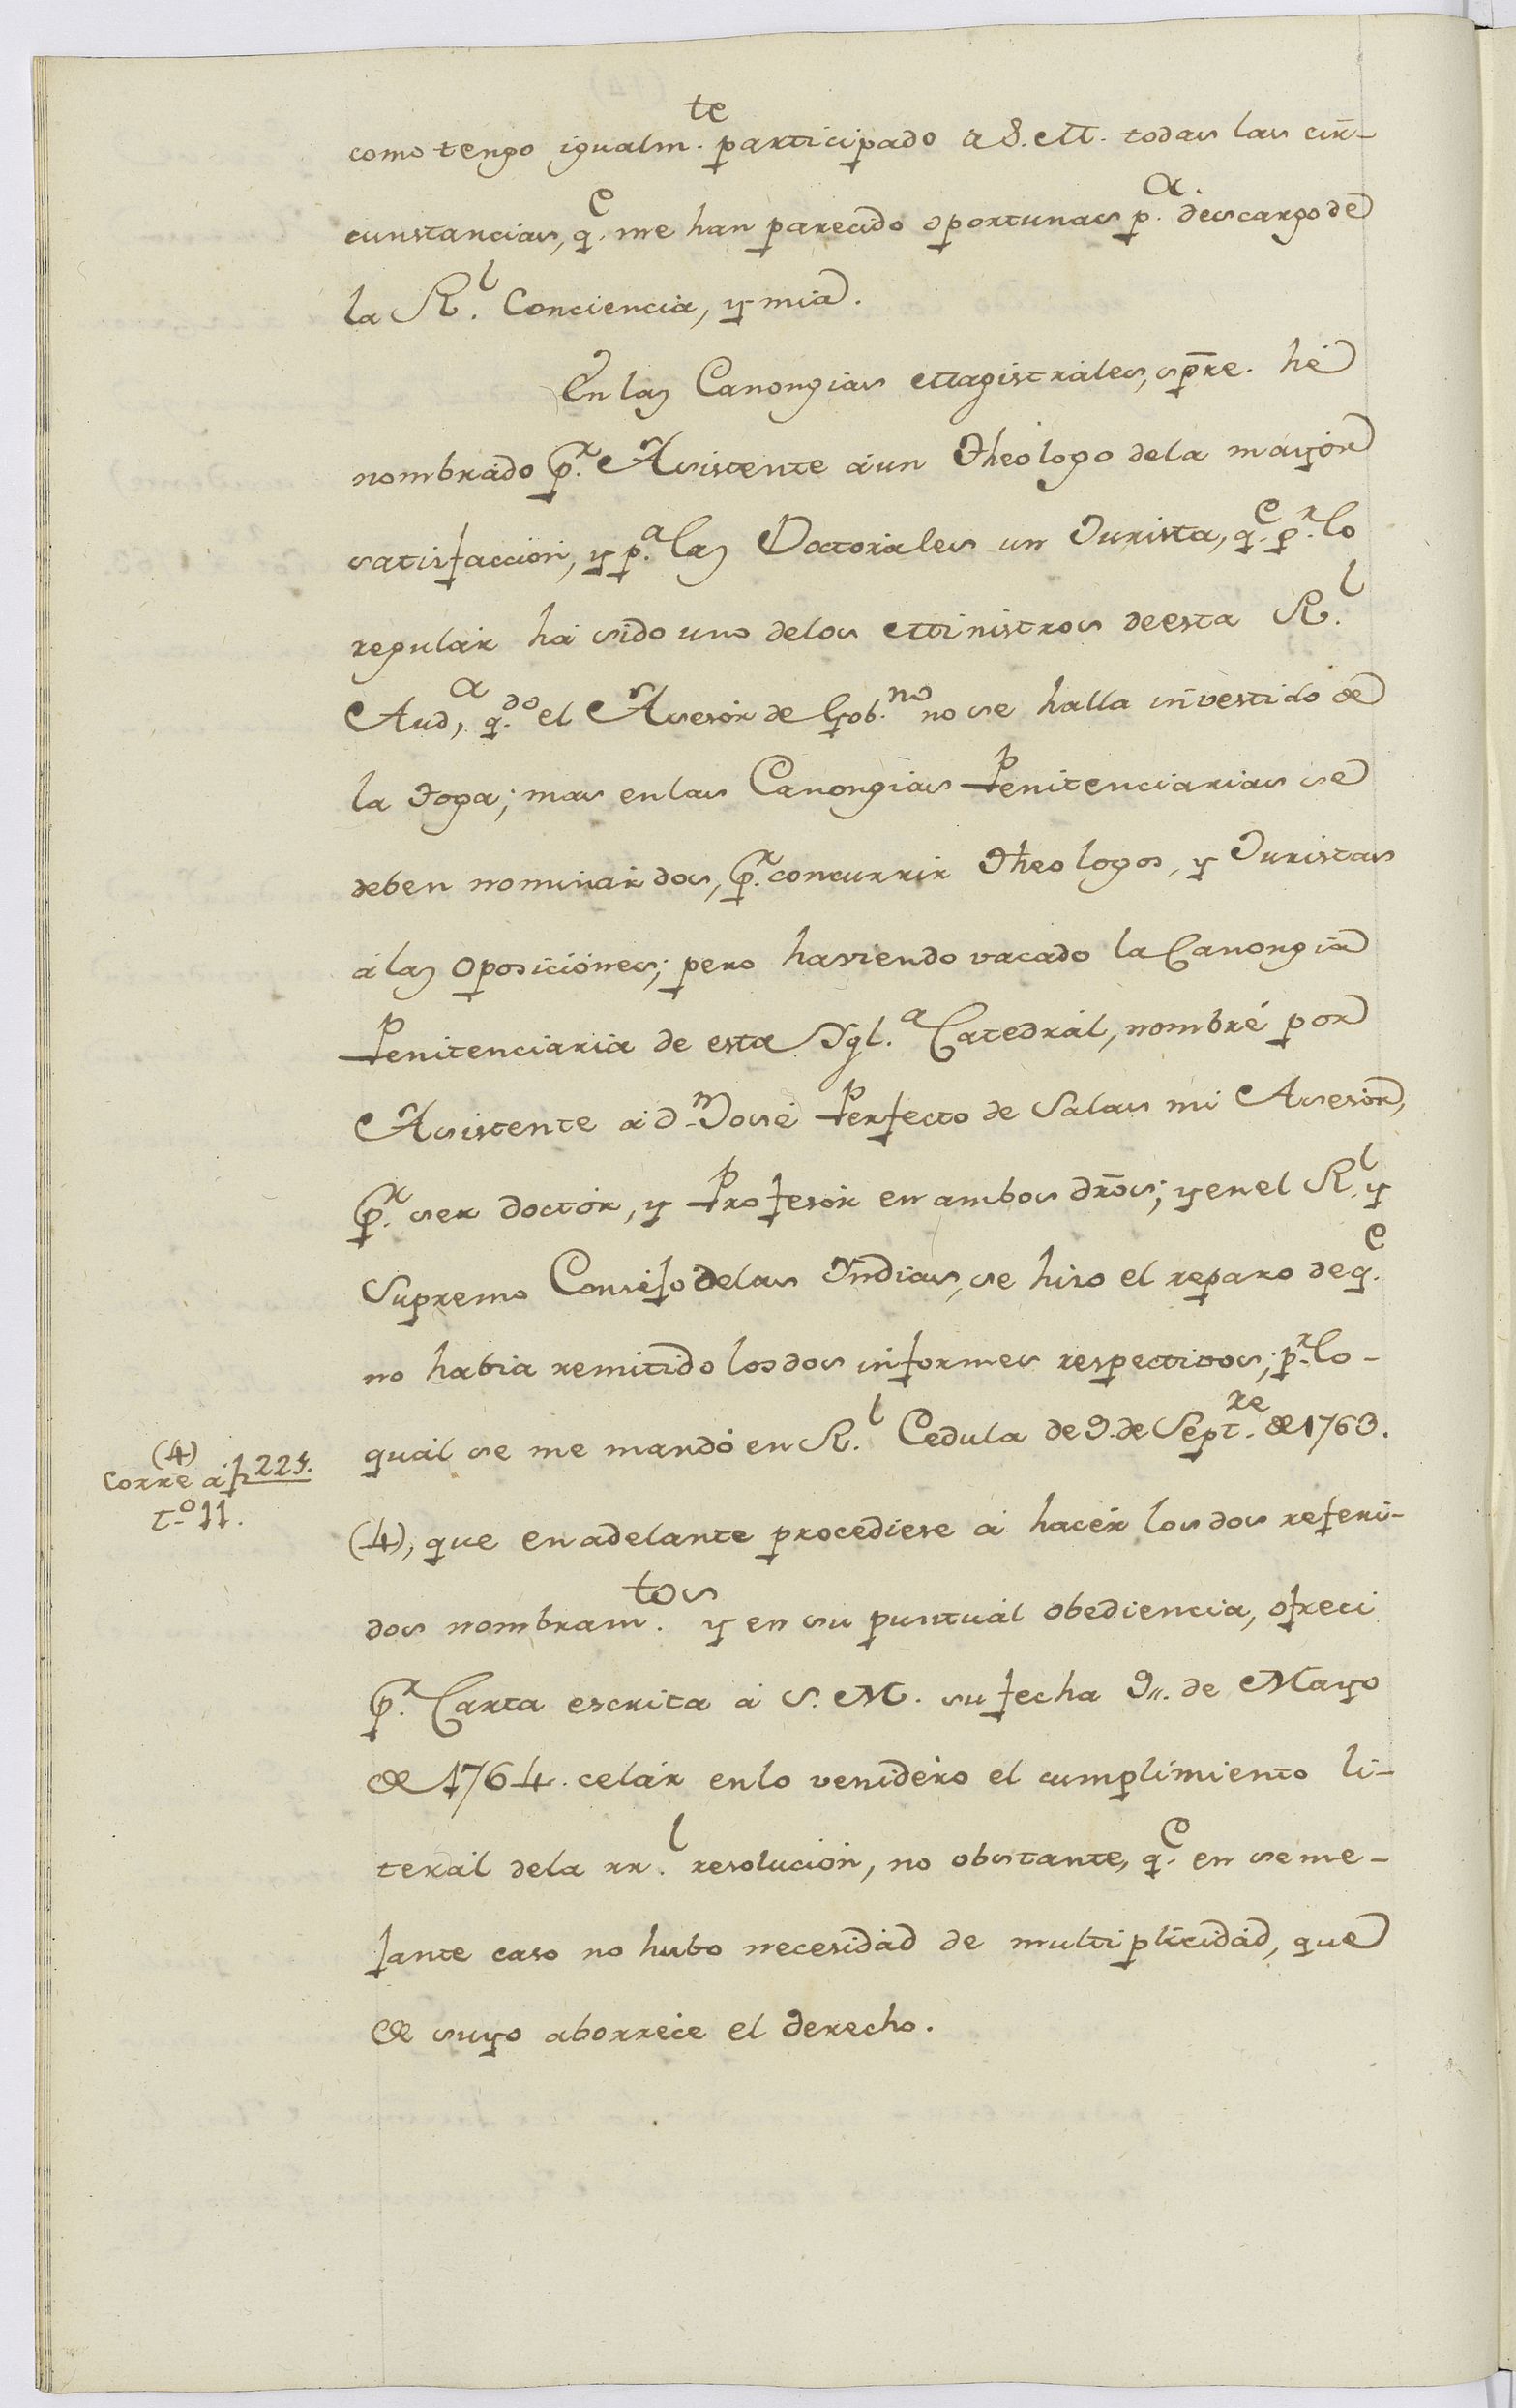 como tengo igualm.te participado a S. M. todas las cir-
cunstancias, q.e me han parecido oportunas p.a descargo de
la R.l Conciencia, y mia.
En las Canongias Magistrales, spre. hé
nombrado p.r Asistente á un Theologo de la mayor
satisfaccion, y p.a las Doctorales un Jurista, q.e p.r lo
regular há sido uno de los Ministros de esta R.l
Aud,a q.do el Asesor de Gob.no no se halla investido de
la Toga; mas en las Canongias Penitenciarias se
deben nominar dos, p.r concurrir Theologos, y Juristas
á las oposiciónes; pero haviendo vacado la Canongia
Penitenciaria de esta Ygl.a Catedrál, nombré por
Asistente á d.n José Perfecto de Salas mi Asesor,
p.r ser doctór, y Profesór en ambos drõs; y en el R.l y
Supremo Consejo de las Yndias, se hiso el reparo de q.e
no habia remitido los dos informes respectivos; p.r lo-
quál se me mandó en R.l Cedula de 9. de Sept.re de 1763.
(4)
Corre á f 225.
t.o 11.
(4), que en adelante procediese á hacér los dos referi-
dos nombram.tos y en su puntuál obediencia, ofreci
p.r Carta escrita á S. M. su fecha 9,, de Mayo
de 1764. celár en lo venidéro el cumplimiento li-
terál de la rr.l resolución, no obstante, q.e en seme-
jante caso no hubo necesidád de multiplicidád, que
de suyo aborrece el derecho.